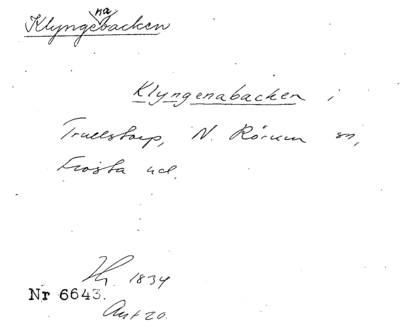 Klyngenabacken
Klyngenabacken,
Trulstorp, N. Rörum sn,
Frosta hd.
Th. 1834
Nr 6643.
Akt 20.